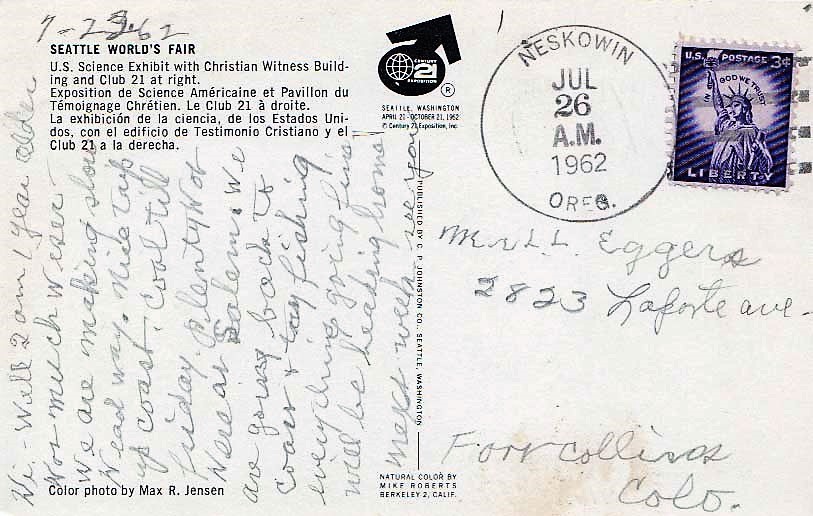 7-25-62
SEATTLE WORLD'S FAIR
U.S. Science Exhibit with Christian Witness Build-
ing and Club 21 at right.
Exposition de Science Américaine et Pavillon du
Témoignage Chrétien. Le Club 21 à droite.
La exhibición de la ciencia, de los Estados Uni-
dos, con el edificio de Testimonio Cristiano y el
Club 21 a la derecha.
Hi - Well I am 1 year older
Not much wiser.
We are making slow
Head way. Nice trip
up coast. Cool till
friday. Plenty Hot
Here at Salem. We
are going back to
coast & try fishing
everything going fine
will be heading home
next week. see you
Color photo by Max R. Jensen
CENTURY
21
EXPOSITION
®
SEATTLE, WASHINGTON
APRIL 21 - OCTOBER 21, 1962
© Century 21 Exposition, Inc.
PUBLISHED BY C. P. JOHNSTON CO., SEATTLE, WASHINGTON
NATURAL COLOR BY
MIKE ROBERTS
BERKELEY 2, CALIF.
NESKOWIN
JUL
26
A.M.
1962
OREG.
U.S. POSTAGE 3¢
IN GOD WE TRUST
LIBERTY
L. L. Eggers
2823 Laporte ave.
Fort collins
Colo.